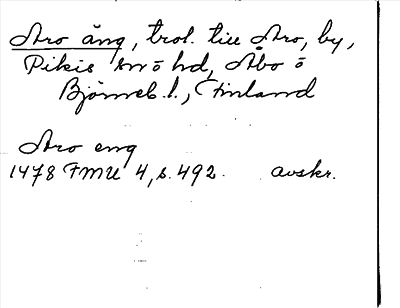 Aro äng, trol. till Aro, by,
Pikis sn o hd, Åbo o
Björneb. l., Finland
Aro eng
1478 FMU 4, s. 492. avskr.